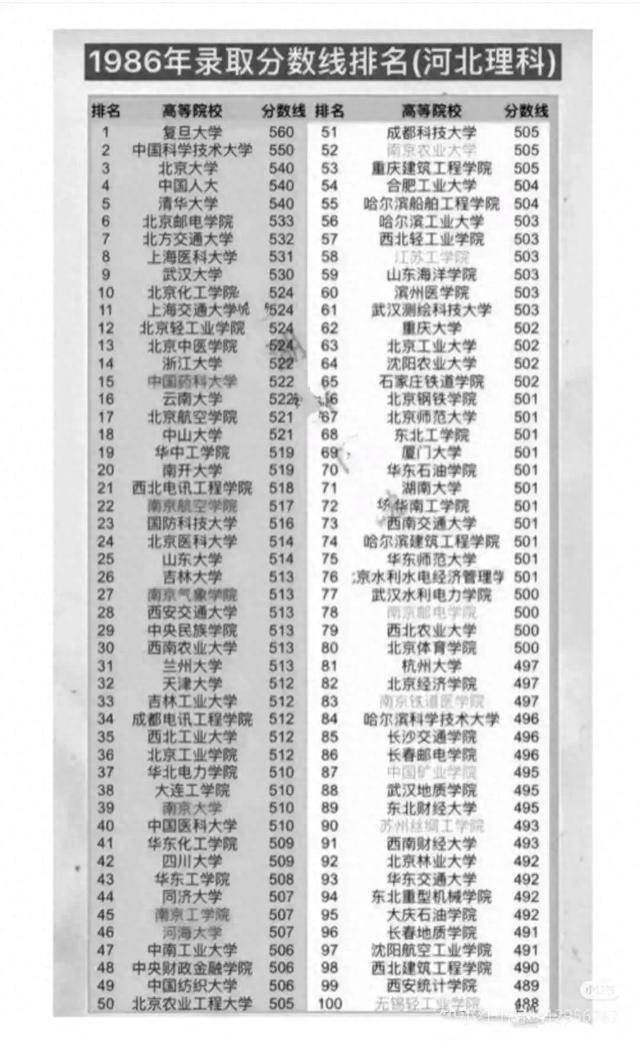 1986年录取分数线排名(河北理科)
排名 高等院校 分数线 排名 高等院校 分数线
1 复旦大学 560 51 成都科技大学 505
2 中国科学技术大学 550 52 南京农业大学 505
3 北京大学 540 53 重庆建筑工程学院 505
4 中国人大 540 54 合肥工业大学 504
5 清华大学 540 55 哈尔滨船舶工程学院 504
6 北京邮电学院 533 56 哈尔滨工业大学 503
7 北方交通大学 532 57 西北轻工业学院 503
8 上海医科大学 531 58 江苏工学院 503
9 武汉大学 530 59 山东海洋学院 503
10 北京化工学院 524 60 滨州医学院 503
11 上海交通大学 524 61 武汉测绘科技大学 503
12 北京轻工业学院 524 62 重庆大学 502
13 北京中医学院 524 63 北京工业大学 502
14 浙江大学 522 64 沈阳农业大学 502
15 中国药科大学 522 65 石家庄铁道学院 502
16 云南大学 522 66 北京钢铁学院 501
17 北京航空学院 521 67 北京师范大学 501
18 中山大学 521 68 东北工学院 501
19 华中工学院 519 69 厦门大学 501
20 南开大学 519 70 华东石油学院 501
21 西北电讯工程学院 518 71 湖南大学 501
22 南京航空学院 517 72 华南工学院 501
23 国防科技大学 516 73 西南交通大学 501
24 北京医科大学 514 74 哈尔滨建筑工程学院 501
25 山东大学 514 75 华东师范大学 501
26 吉林大学 513 76 京水利水电经济管理学 501
27 南京气象学院 513 77 武汉水利电力学院 500
28 西安交通大学 513 78 南京邮电学院 500
29 中央民族学院 513 79 西北农业大学 500
30 西南农业大学 513 80 北京体育学院 500
31 兰州大学 513 81 杭州大学 497
32 天津大学 512 82 北京经济学院 497
33 吉林工业大学 512 83 南京铁道医学院 497
34 成都电讯工程学院 512 84 哈尔滨科学技术大学 496
35 西北工业大学 512 85 长沙交通学院 496
36 北京工业学院 512 86 长春邮电学院 496
37 华北电力学院 510 87 中国矿业学院 495
38 大连工学院 510 88 武汉地质学院 495
39 南京大学 510 89 东北财经大学 495
40 中国医科大学 510 90 苏州丝绸工学院 493
41 华东化工学院 509 91 西南财经大学 493
42 四川大学 509 92 北京林业大学 492
43 华东工学院 508 93 华东交通大学 492
44 同济大学 507 94 东北重型机械学院 492
45 南京工学院 507 95 大庆石油学院 492
46 河海大学 507 96 长春地质学院 491
47 中南工业大学 506 97 沈阳航空工业学院 491
48 中央财政金融学院 506 98 西北建筑工程学院 490
49 中国纺织大学 506 99 西安统计学院 489
50 北京农业工程大学 505 100 无锡轻工业学院 488